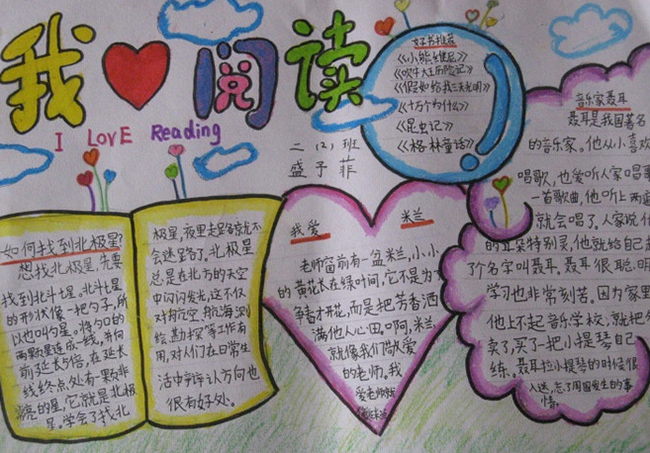 我 阅读
I LOVE Reading
二（2）班
盛子菲
好书推荐
《小熊维尼》
《吹牛大王历险记》
《假如给我三天光明》
《十万个为什么》
《昆虫记》
《格林童话》
如何找到北极星?
想找北极星，先要
找到北斗七星。北斗七星
的形状像一把勺子，所
以也叫勺星。将勺口的
两颗星连成一线，并向
前延长5倍，在延长
线终点处有一颗非
常亮的星，它就是北极
星。学会了找北
极星，夜里走路你就不
会迷路了。北极星
总是在北方的天空
中闪闪发光，这不仅
对航空、航海、测
绘、勘探等工作有
用，对人们在日常生
活中辩认方向也
很有好处。
我爱 米兰
老师窗前有一盆米兰，小小
的黄花长在绿叶间，它不是为了
争春才开花，而是把芳香洒
满他人心田。啊，米兰，
就像我们敬爱
的老师。我
爱老师
音乐家聂耳
聂耳是我国著名
的音乐家。他从小喜欢
唱歌，也爱听人家唱
一首歌曲，他听上两遍
就会唱了。人家说他
的耳朵特别灵，他就给自己起
了个名字叫聂耳。聂耳很聪明，
学习也非常刻苦。因为家里
他上不起音乐学校，就把
卖了，买了一把小提琴自己
练。聂耳拉小提琴的时候很
入迷，忘了周围发生的事
情。